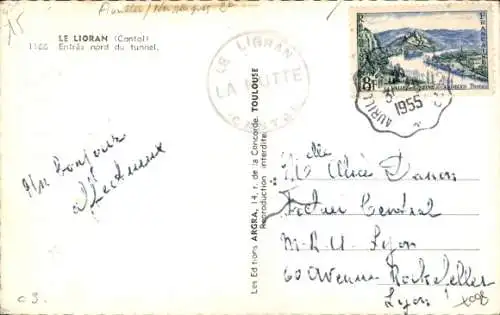 15
LE LIORAN (Cantal)
1166 Entrée nord du tunnel.
LE LIORAN
LA BUTTE
CANTAL
8F
AURILL
31
1955
Un bonjour
affectueux
Les Editions ARGRA, 14, r. de la Concorde, TOULOUSE
Reproduction interdite
Melle Alice
Secteur Central
M.R.U. Lyon
60 Avenue Rockefeller
Lyon